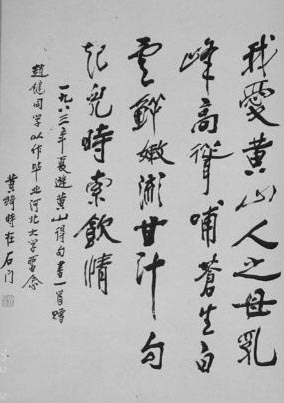 我愛黄山人之母乳
峰高聳哺蒼生白
雲鮮嫩瀰甘汁勾
起兒時索飲情
一九八三年夏遊黄山得句書一首贈
趙健同学以作毕业河北大学留念
黄綺時在石门